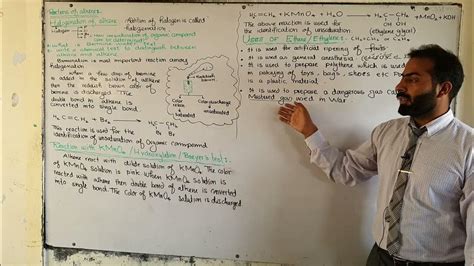 Reactions of alkenes.
Halogenation of alkene: Addition of Halogen is called
Halogenation
Bromination is most important reaction among
Halogenation
When a few drop of bromine
is added in the solution of alkene
then the reddish brown color of
bromine is discharged. The
double bond in alkene is converted
into single bond
H₂C=CH₂ + Br₂ → H₂C-CH₂
Br Br
This reaction is used for the identification
of unsaturation of Organic compound
Reaction with KMnO₄ / Hydroxylation / Baeyer's test:
Alkene react with dilute solution of KMnO₄. The color
of KMnO₄ solution is pink when KMnO₄ solution is
reacted with alkene then double bond of alkene is converted
into single bond. The color of KMnO₄ solution is discharged
H₂C=CH₂ + KMnO₄ + H₂O → H₂C-CH₂ + MnO₂ + KOH
OH OH
The above reaction is used for the
identification of unsaturation. (ethylene glycol)
Uses of Ethene / Ethylene:
It is used for artificial ripening of fruits.
It is used as general anesthesia
It is used to prepare polythene which is used
in packaging of toys, bags, shoes etc
plastic material
It is used to prepare a dangerous gas
Mustard gas used in War